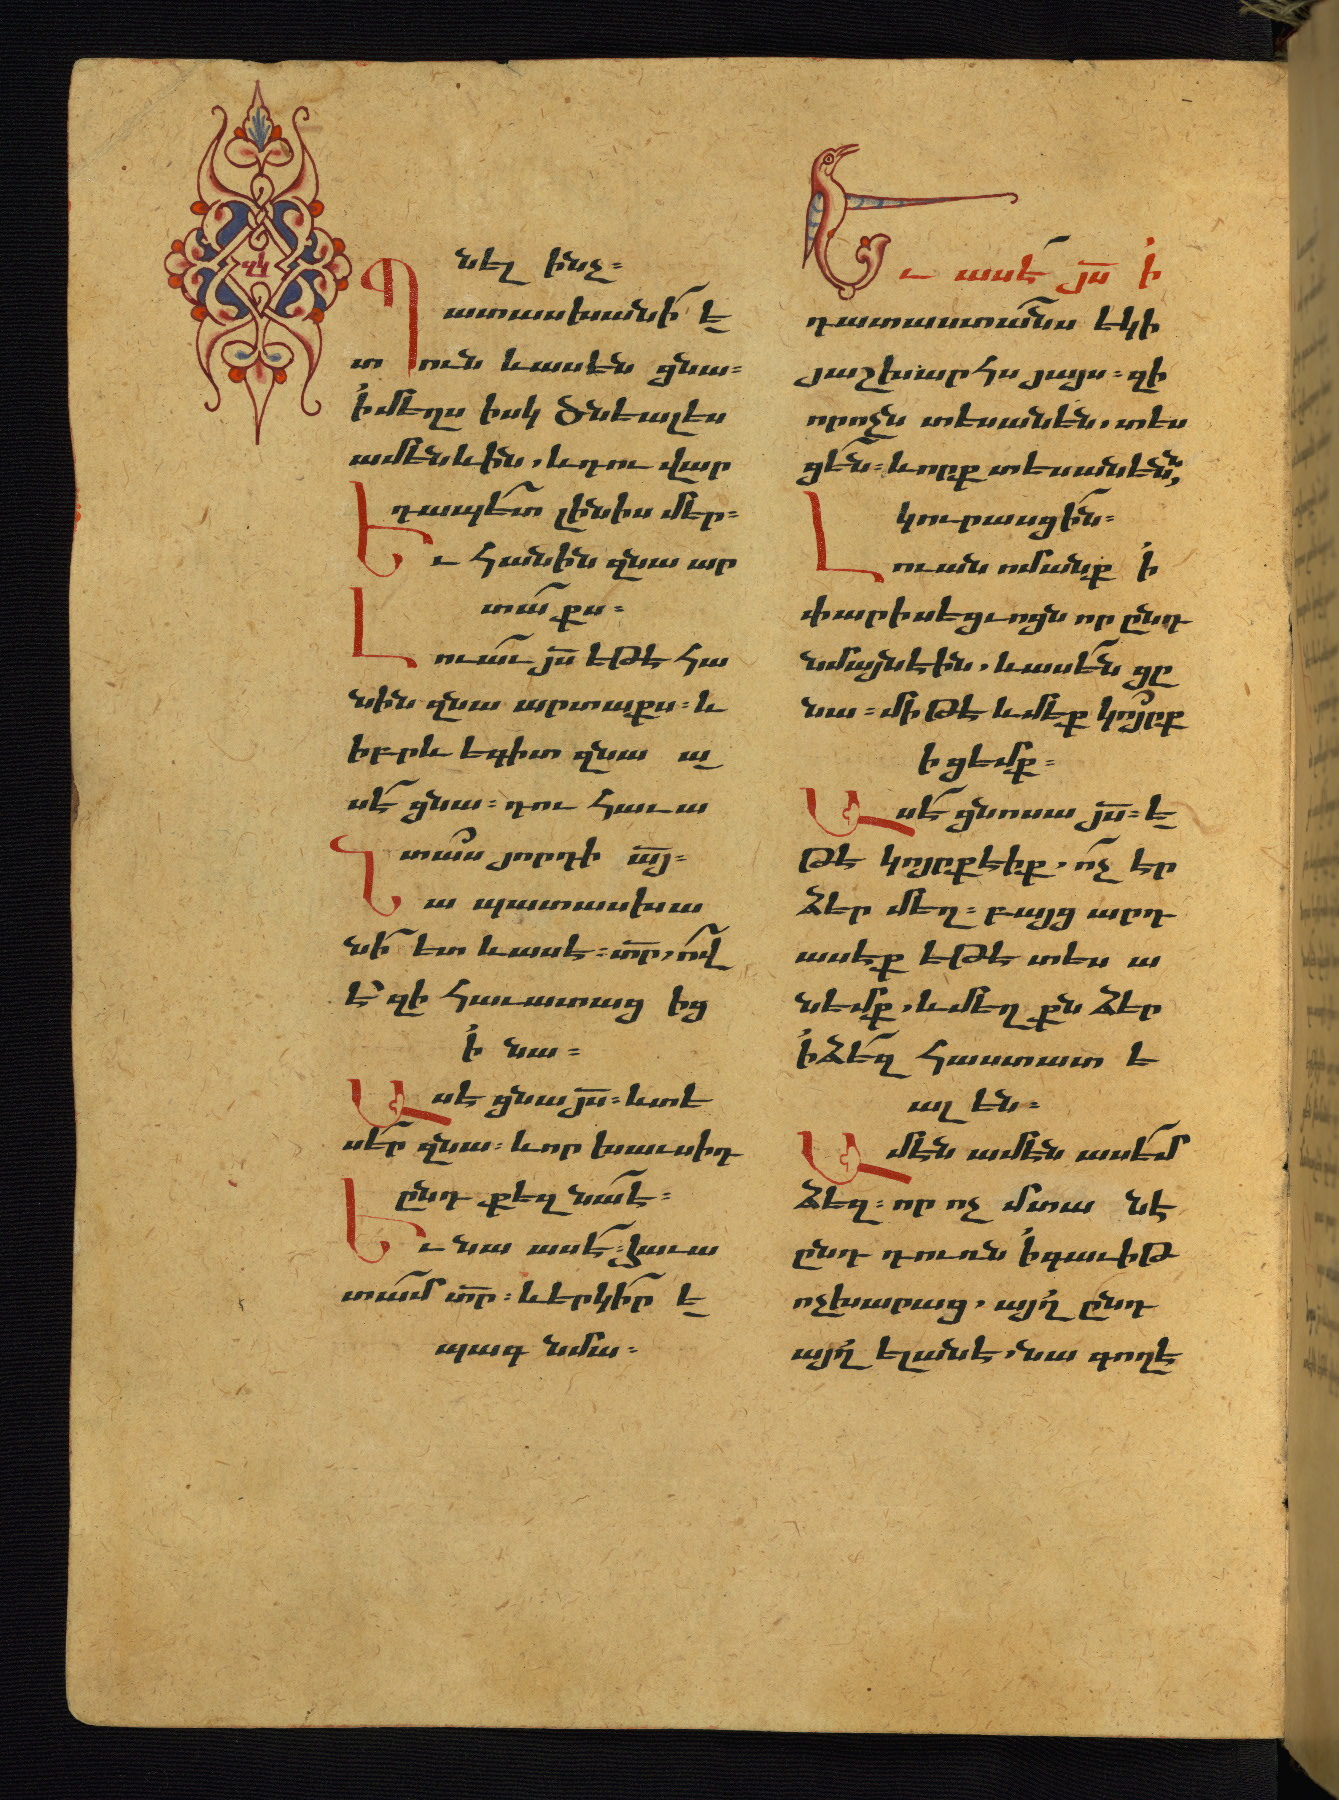 զկ
նել ինչ։
Պատասխանի ե
տուն և ասեն ցնա։
ի մեղս իսկ ծնեալ ես
ամենևին, և դու վար
դապետ լինիս մեր։
Եւ հանին զնա ար
տաքս։
Լուաւ յս եթէ հա
նին զնա արտաքս։ և
իբրև եգիտ զնա ա
սէ ցնա։ դու հաւա
տաս յորդի այ։
Նա պատասխա
նի ետ և ասէ։ տր, ով
է զի հաւատաց ից
ի նա։
Ասէ ցնա յս։ և տե
սեր զնա։ և որ խաւսիդ
ընդ քեզ նա է։
Եւ նա ասէ։ հաւա
տամ տր։ և երկիր ե
պագ նմա։
Եւ ասէ յս ի
դատաստանս եկի
յաշխարհս յայս։ զի
որ ոչն տեսանեն, տես
ցեն։ և որք տեսանենն,
կուրասցին։
Լուան ոմանք ի
փարիսեցւոցն որ ընդ
նմայն էին, և ասեն ցը
նա։ մի թէ և մեք կոյրք
իցեմք։
Ասէ ցնոսա յս։ ե
թէ կոյրք էիք, ոչ էր
ձեր մեղ։ բայց արդ
ասէք եթէ տեսա
նեմք, և մեղքն ձեր
ի ձեզ հաստատե
ալ են։
Ամէն ամէն ասեմ
ձեզ։ որ ոչ մտանէ
ընդ դուռն ի գաւիթ
ոչխարաց, այլ ընդ
այլ ելանէ, նա գող է